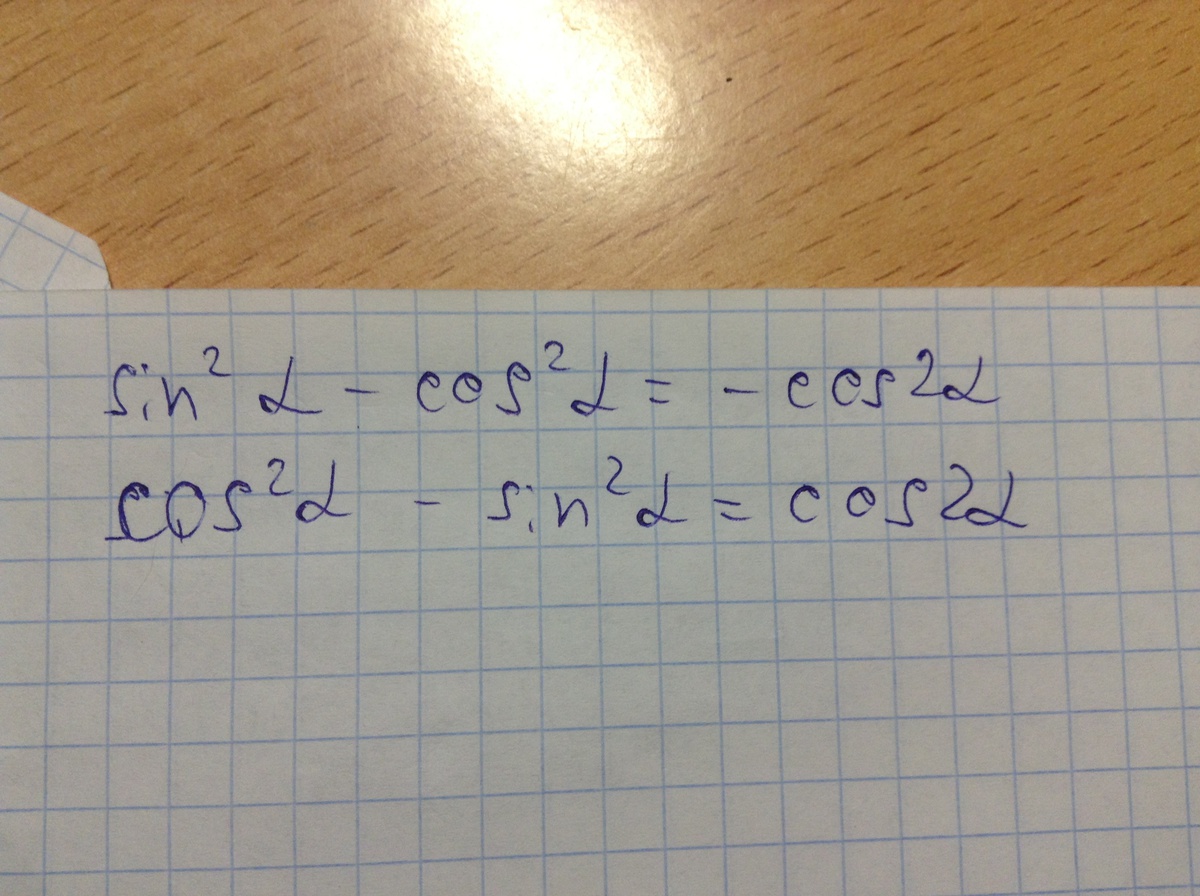 sin² α - cos² α = - cos2α
cos² α - sin² α = cos2α